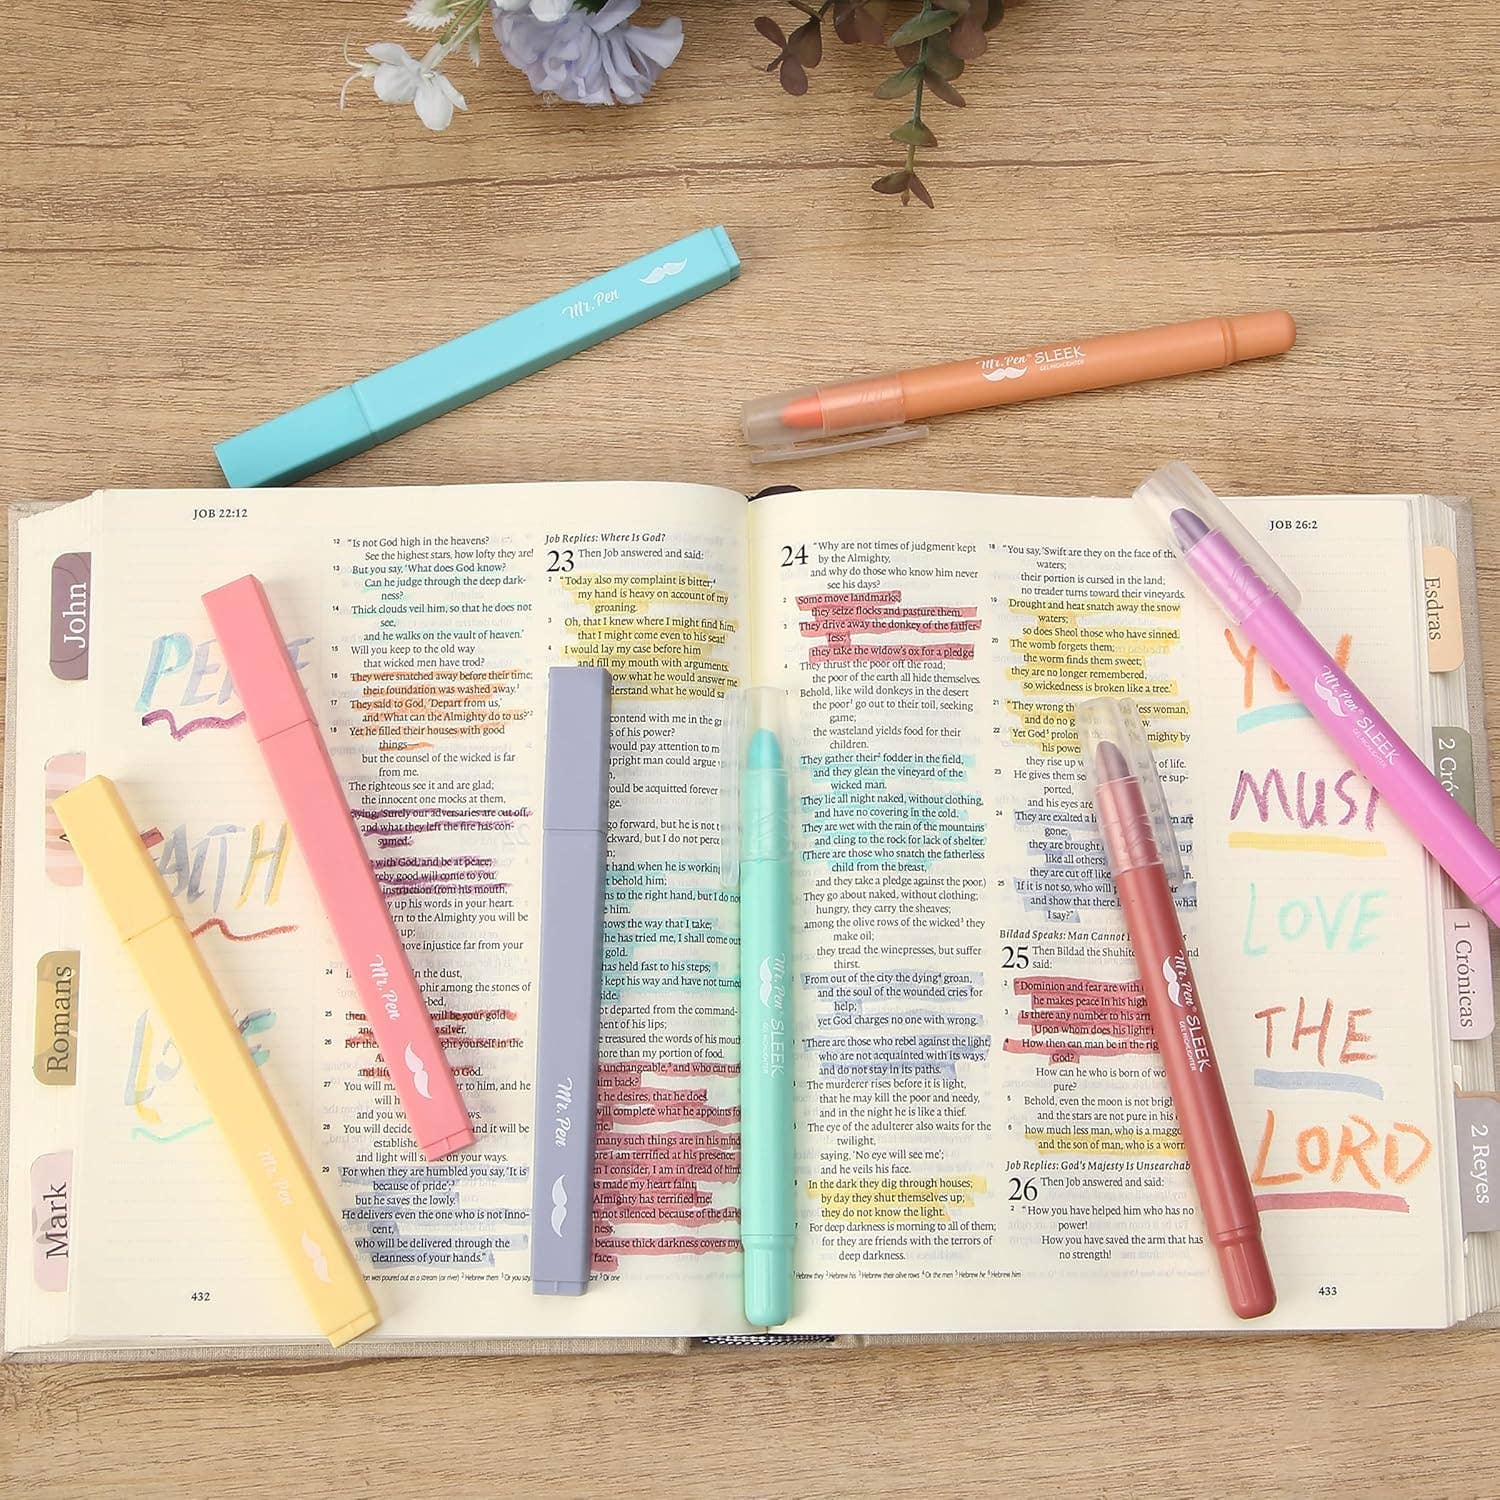 Mr. Pen
Mr. Pen SLEEK
GEL HIGHLIGHTER
JOB 22:12
12 "Is not God high in the heavens?
See the highest stars, how lofty they are!
13 But you say, 'What does God know?
Can he judge through the deep dark-
ness?
14 Thick clouds veil him, so that he does not
see,
and he walks on the vault of heaven.'
15 Will you keep to the old way
that wicked men have trod?
16 They were snatched away before their time;
their foundation was washed away.
17 They said to God, 'Depart from us,'
and 'What can the Almighty do to us?'
18 Yet he filled their houses with good
things—
but the counsel of the wicked is far
from me.
The righteous see it and are glad;
the innocent one mocks at them,
saying, 'Surely our adversaries are cut off,
and what they left the fire has con-
sumed.'
with God, and be at peace;
good will come to you.
instruction from his mouth,
up his words in your heart.
to the Almighty you will be
up;
injustice far from your
24 in the dust,
among the stones of
-bed,
25 then will be your gold
silver.
26 For then yourself in the
and lift to God.
27 You will to him, and he
will
and you
28 You will decide and it will be
establishe
and light will on your ways.
29 For when they are humbled you say, 'It is
because of pride';
but he saves the lowly.
He delivers even the one who is not inno-
cent,
who will be delivered through the
cleanness of your hands."
432
Job Replies: Where Is God?
23 Then Job answered and said:
2 "Today also my complaint is bitter;
my hand is heavy on account of my
groaning.
3 Oh, that I knew where I might find him,
that I might come even to his seat!
4 I would lay my case before him
and fill my mouth with arguments.
know what he would answer me
understand what he would sa
contend with me in the gr
of his power?
would pay attention to m
upright man could argue
be acquitted forever
ge.
go forward, but he is not
but I do not perce
hand when he is working
behold him;
to the right hand, but I do not
him.
knows the way that I take;
he has tried me, I shall come out
gold.
has held fast to his steps;
kept his way and have not turned
side.
not departed from the command-
ment of his lips;
treasured the words of his mouth
more than my portion of food.
unchangeable, and who can turn
him back?
he desires, that he does.
will complete what he appoints for
me,
many such things are in his mind
I am terrified at his presence;
I consider, I am in dread of him.
made my heart faint;
Almighty has terrified me;
not silenced because of the dark
ness,
because thick darkness covers my
face.
24 "Why are not times of judgment kept
by the Almighty,
and why do those who know him never
see his days?
2 Some move landmarks;
they seize flocks and pasture them.
3 They drive away the donkey of the father-
less;
they take the widow's ox for a pledge.
4 They thrust the poor off the road;
the poor of the earth all hide themselves.
Behold, like wild donkeys in the desert
the poor go out to their toil, seeking
game;
the wasteland yields food for their
children.
They gather their fodder in the field,
and they glean the vineyard of the
wicked man.
They lie all night naked, without clothing,
and have no covering in the cold.
They are wet with the rain of the mountains
and cling to the rock for lack of shelter.
(There are those who snatch the fatherless
child from the breast,
and they take a pledge against the poor.)
They go about naked, without clothing;
hungry, they carry the sheaves;
among the olive rows of the wicked they
make oil;
they tread the winepresses, but suffer
thirst.
From out of the city the dying groan,
and the soul of the wounded cries for
help;
yet God charges no one with wrong.
"There are those who rebel against the light,
who are not acquainted with its ways,
and do not stay in its paths.
The murderer rises before it is light,
that he may kill the poor and needy,
and in the night he is like a thief.
The eye of the adulterer also waits for the
twilight,
saying, 'No eye will see me';
and he veils his face.
In the dark they dig through houses;
by day they shut themselves up;
they do not know the light.
For deep darkness is morning to all of them;
for they are friends with the terrors of
deep darkness.
JOB 26:2
18 "You say, 'Swift are they on the face of the
waters;
their portion is cursed in the land;
no treader turns toward their vineyards.
19 Drought and heat snatch away the snow
waters;
so does Sheol those who have sinned.
20 The womb forgets them;
the worm finds them sweet;
they are no longer remembered,
so wickedness is broken like a tree.'
21 "They wrong th less woman,
and do no g
22 Yet God prolon mighty by
his power
they rise up of life.
23 He gives them sup-
ported,
and his eyes are
24 They are exalted a li en are
gone;
they are brought
like all others;
they are cut off like
25 If it is not so, who will
and show that there
I say?"
Bildad Speaks: Man Cannot
25 Then Bildad the Shuhite
said:
2 "Dominion and fear are with
he makes peace in his high
3 Is there any number to his arm
Upon whom does his light
4 How then can man be in the righ
God?
How can he who is born of wo
pure?
5 Behold, even the moon is not brigh
and the stars are not pure in his
6 how much less man, who is a maggo
and the son of man, who is a worm
Job Replies: God's Majesty Is Unsearchab
26 Then Job answered and said:
2 "How you have helped him who has no
power!
How you have saved the arm that has
no strength!
433
John
Romans
Mark
Esdras
2 Cró
1 Crónicas
2 Reyes
MUST
LOVE
THE
LORD
Mr. Pen
Mr. Pen
Mr. Pen
Mr. Pen SLEEK
GEL HIGHLIGHTER
Mr. Pen SLEEK
GEL HIGHLIGHTER
Mr. Pen SLEEK
GEL HIGHLIGHTER